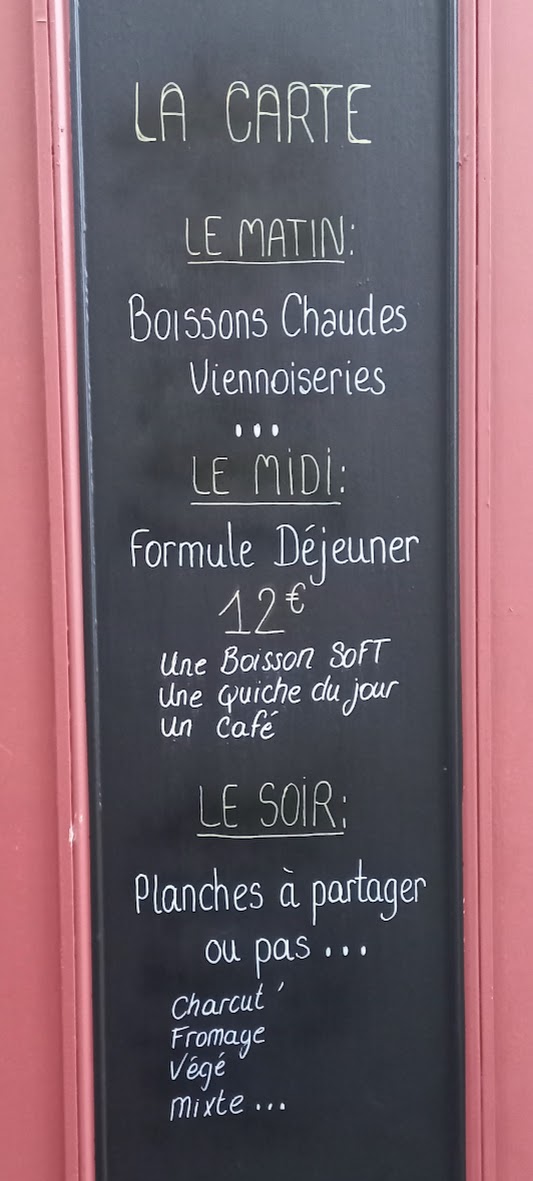 LA CARTE
LE MATIN:
Boissons Chaudes
Viennoiseries
...
LE MIDI:
Formule Déjeuner
12€
Une Boisson SOFT
Une quiche du jour
Un Café
LE SOIR:
Planches à partager
ou pas...
Charcut'
Fromage
Végé
Mixte...